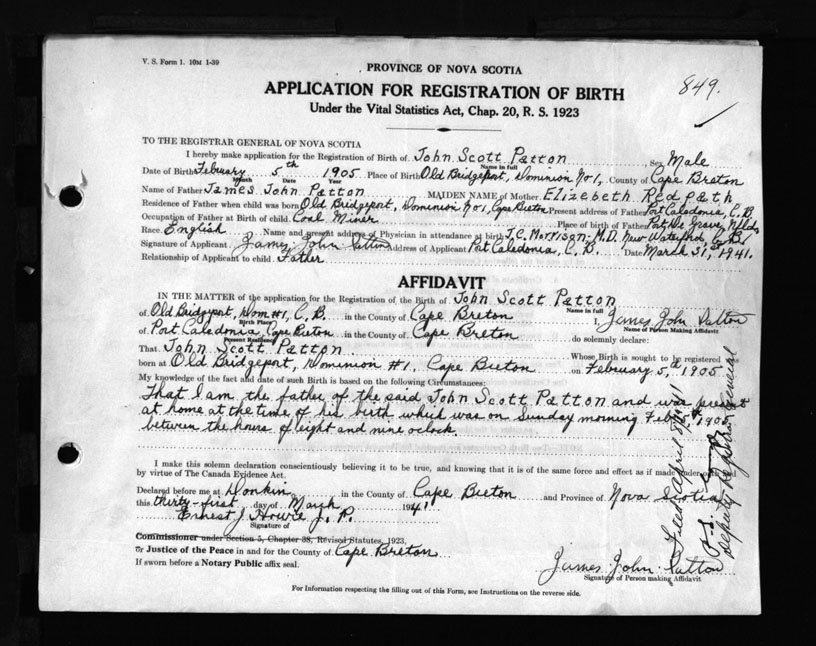 V. S. Form 1. 10M 1-39
849.
PROVINCE OF NOVA SCOTIA
APPLICATION FOR REGISTRATION OF BIRTH
Under the Vital Statistics Act, Chap. 20, R. S. 1923
TO THE REGISTRAR GENERAL OF NOVA SCOTIA
I hereby make application for the Registration of Birth of John Scott Patton, Sex Male
Name in full
Date of Birth February 5th 1905 Place of Birth Old Bridgeport, Dominion No 1, County of Cape Breton
Month Date Year
Name of Father James John Patton MAIDEN NAME of Mother Elizebeth Redpath
Residence of Father when child was born Old Bridgeport, Dominion No 1, Cape Breton Present address of Father Port Caledonia, C.B.
Occupation of Father at Birth of child Coal Miner Place of birth of Father Port De Grave, Nfld.
Race English Name and present address of Physician in attendance at birth T.C. Morrison M.D. New Waterford C.B.
Signature of Applicant James John Patton Address of Applicant Port Caledonia, C.B. Date March 31, 1941.
Relationship of Applicant to child Father
AFFIDAVIT
IN THE MATTER of the application for Registration of the Birth of John Scott Patton
Name in full
of Old Bridgeport, Dom #1, C.B. in the County of Cape Breton I, James John Patton
Birth Place Name of Person Making Affidavit
of Port Caledonia, Cape Breton in the County of Cape Breton do solemnly declare:
Present Residence
That John Scott Patton Whose Birth is sought to be registered
born at Old Bridgeport, Dominion #1, Cape Breton on February 5th 1905
My knowledge of the fact and date of such Birth is based on the following Circumstances:
That I am the father of the said John Scott Patton and was present
at home at the time of his birth which was on Sunday morning Feb. 5th 1905
between the hours of eight and nine oclock.
I make this solemn declaration conscientiously believing it to be true, and knowing that it is of the same force and effect as if made under oath and
by virtue of The Canada Evidence Act.
Declared before me at Donkin in the County of Cape Breton and Province of Nova Scotia
this thirty-first day of March 1941
Ernest J Howie J. P.
Signature of
Commissioner under Section 5, Chapter 38, Revised Statutes, 1923,
or Justice of the Peace in and for the County of Cape Breton
If sworn before a Notary Public affix seal.
James John Patton
Signature of Person making Affidavit
For Information respecting the filling out of this Form, see Instructions on the reverse side.
Filed April 8
Deputy Registrar General